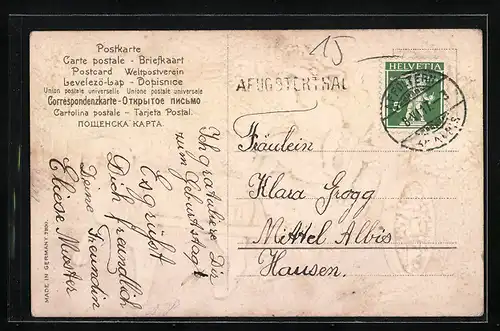 Postkarte
Carte postale - Briefkaart
Postcard Weltpostverein
Levelező-Lap - Dopisnice
Union postale universelle Unione postale universale
Correspondenzkarte - Открытое письмо
Cartolina postale - Tarjeta Postal.
ПОЩЕНСКА КАРТА.
15
AEUGSTERTHAL
HELVETIA
5
Fräulein
Klara Grogg
Mittel Albis
Hausen.
Ich gratuliere Dir
zum Geburtstag!
Es grüßt
Dich freundlich
Deine Freundin
Eliese
MADE IN GERMANY